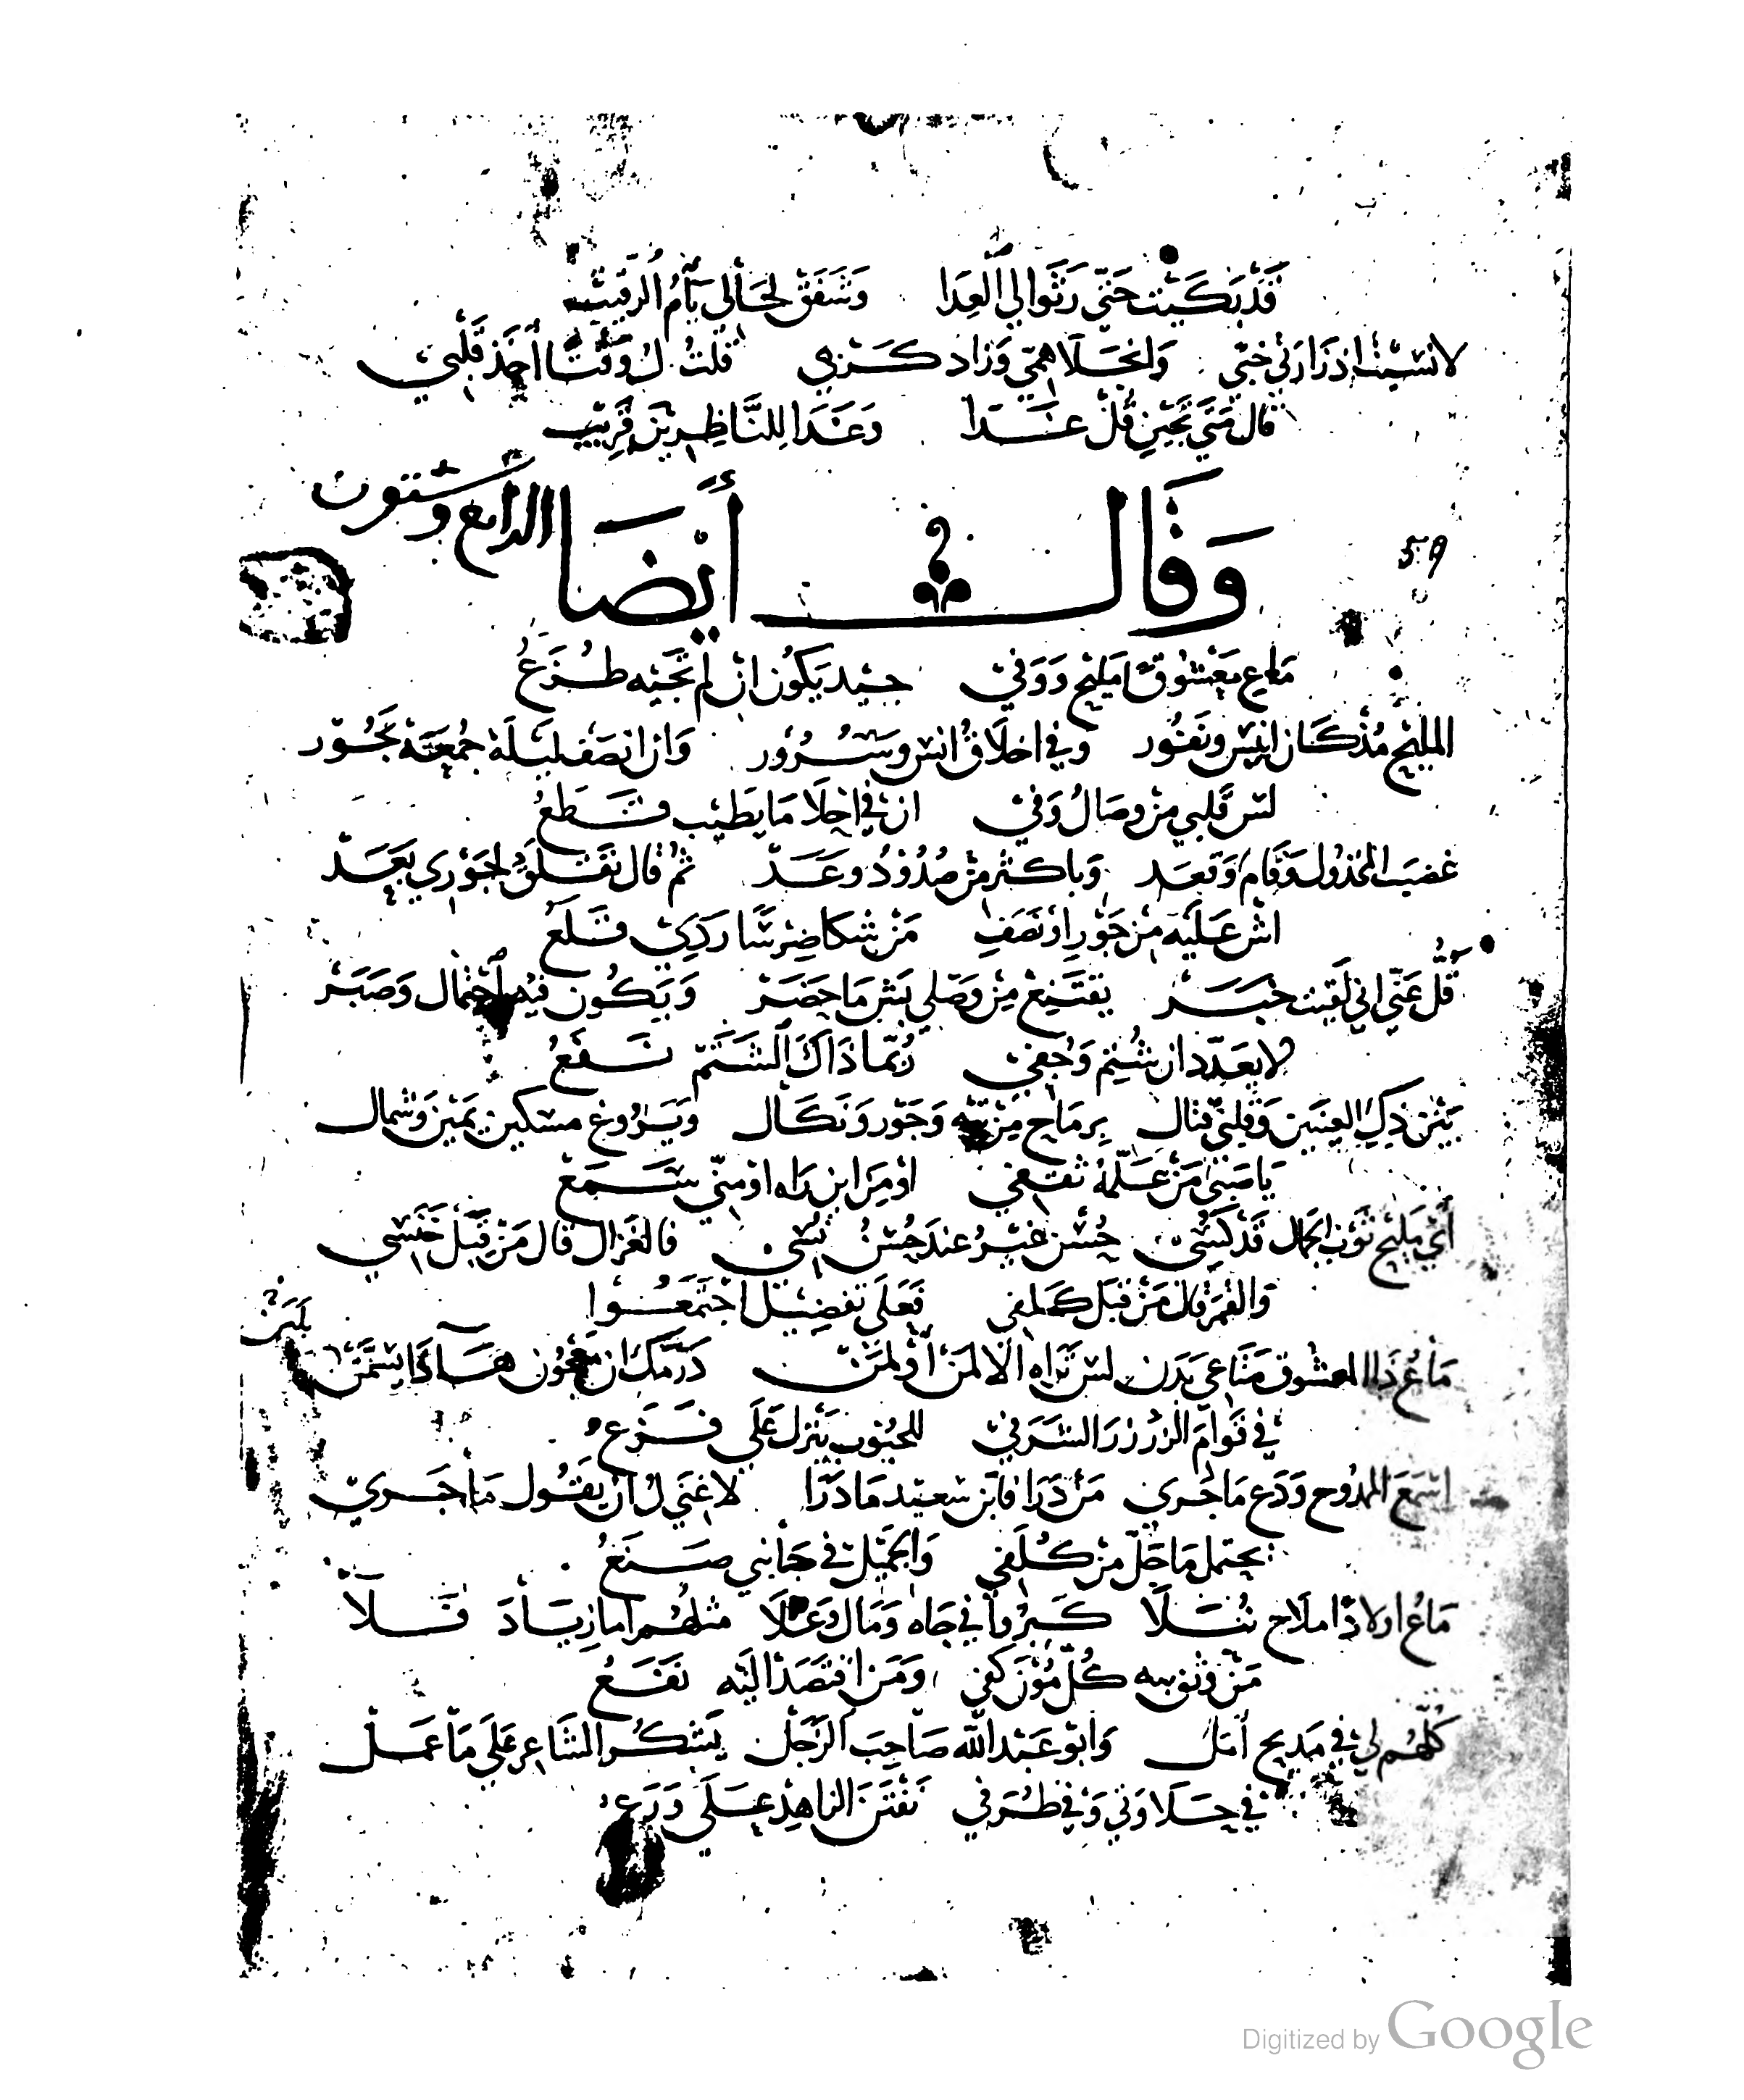 قَدْ بَكَيْت حَتّى رَثَوا لي العِدَا وَشَفَق لحَالى يَامُ الرقيبْ
لا نسيت اذ زارني حبّي وَانجَلا همّي وَزاد كَرْبي قُلتُ لُ وَقتًا اخذ قَلْبي
قال مَتى تجينِ قُلْ غَدا وَغَدَا لِلنَّاظِرِيْن قَرِيْب
وَقَال أيْضَا الرابع وستون
59
مَاع مَعْشُوقًا مَليح وَوَفيْ جيّد يَكُون انْ لم تَجيْه طُزعُ
المليح مُذْ كَان انيس ونَفُور وفي اخلاقُ انس وسُرُور وَان انصَف ليْلَة جُمعَة يَجُوْر
لسْ قَلبي مِنْ وصَالُ وَفيْ ان في اخلا مَا يَطيْب قَطَعُ
غضبَ المخذول وَقَام وَقعَد وَباكثر مِنْ صُدُودُ وعَدّ ثُم قال نقلق لجَوْري بَعَدْ
اشْ عَلَيْه مِن جَوْرِ اوْ نَصَفِ مَنْ شكا ضِرْسًا رَدِي قَلَعُ
قُلْ عَنّي اني لَقيت خبَر يقتَنِع مِنْ وَصْلي بَشْ مَا حضَرْ وَيَكُون فيْه احتمال وَصَبَرْ
لا يعَدّد ان شُتِم وَجُفيْ رُبّما ذَاكَ الشتَمْ نَفَعُ
بَيْن ذِكِ العينَين وَقلبي قتال بِرمَاح مِن تيْه وَجَوْر وَنَكَال وَيَرُوغ مسكين يَمين وَشمال
يَا صَبْي مَنْ عَلّمهُ ثقَفي اوْ مِن اين رَاه اوْ مِنّي سَمَعْ
أيّ مَليح ثَوْب الجمال قَدْ كسيْ حُسْن غيْرُ عند حُسنُ نُسي فالغَزال قال مَنْ قبَل خَنَسي
وَالقَمَرْ قال مَنْ قِبَل كَلفي فَعَلى تفضيْل اجْتَمَعُوا
مَاعُ ذَا المعشوق مَتاعي بَدَن لسْ تَراه الا لمَنْ أوْ لمَنْ دَرْمَك ان مَعجُون هَا ذا بسَمَنْ بَلَبَنْ
في قَوام الزرْزرَ الشرَفيْ للجُنُوب يَنْزل عَلَى فَزَعُ
اسْمَع الممْدُوح وَدَع مَا جَرى مَنْ دَرَا فابْن سعيْد مَا دَرَا لا غنَى لُ انْ يَقُول مَا جَرَىْ
يحتمل مَا جَلّ مِنْ كُلَفي وَالجميْل في جَانبي صنَعُ
مَاعُ اولادًا ملَاح نُبَلَا كَبرُوا في جَاه وَمَال وَعُلَا مثلهُم امَا زيَادَ فَلَا
مَنْ وثق بيه كُلّ مُؤن كفي وَمَن اقتصَدَ اليْه نَفَعُ
كُلّهُم لي في مَديح أمَل وَابو عَبْد اللّه صَاحِب الزَّجَلْ يَشْكُر الشَاعر عَلَى مَا عمَلْ
في حَلاوَتي وَفي ظُرَفي نفْتن الزاهِد عَلَى وَرَعِ